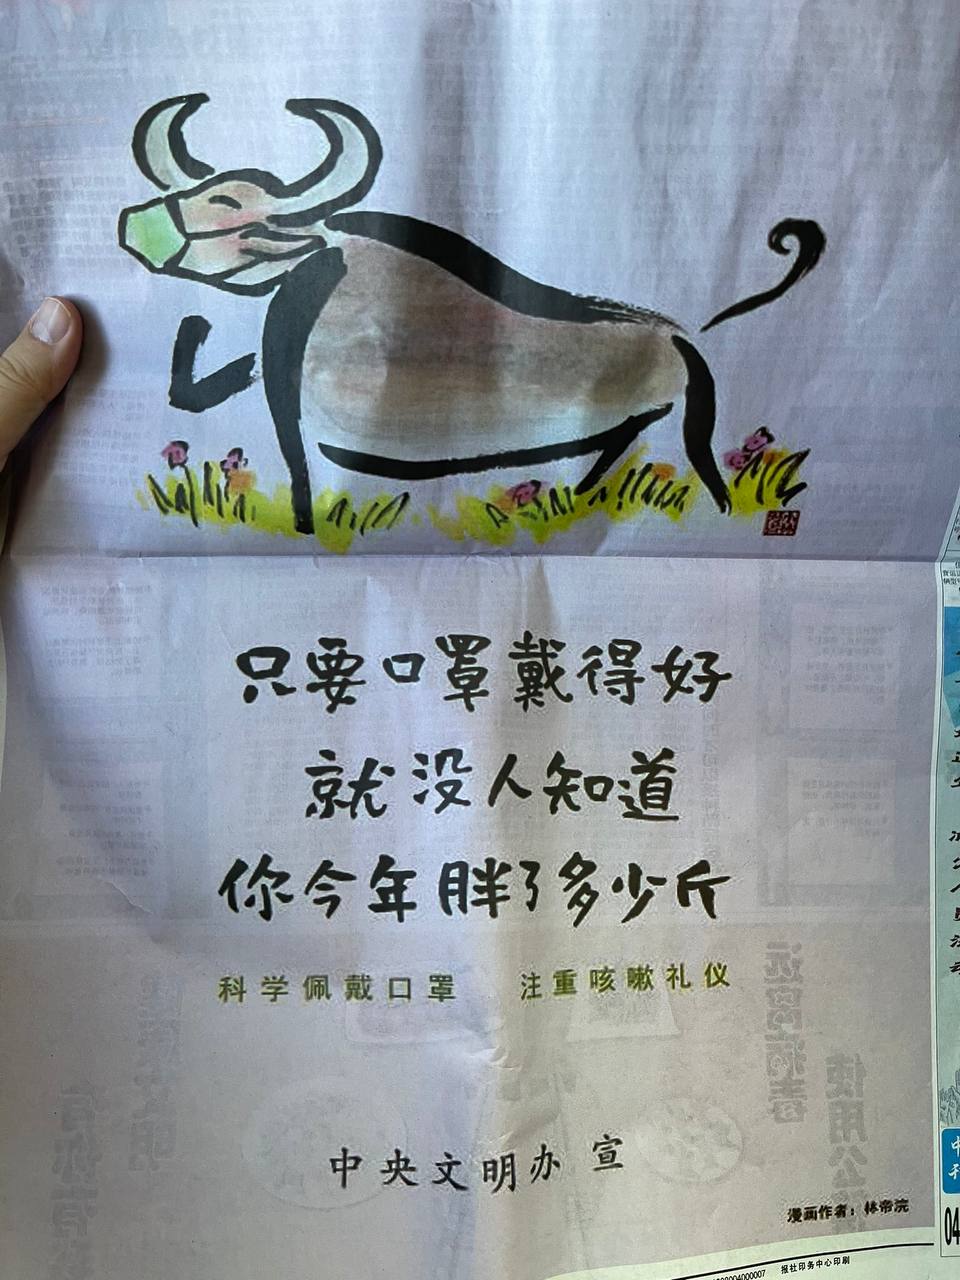 只要口罩戴得好
就没人知道
你今年胖了多少斤
科学佩戴口罩 注重咳嗽礼仪
中央文明办 宣
漫画作者：林帝浣
报社印务中心印刷
04